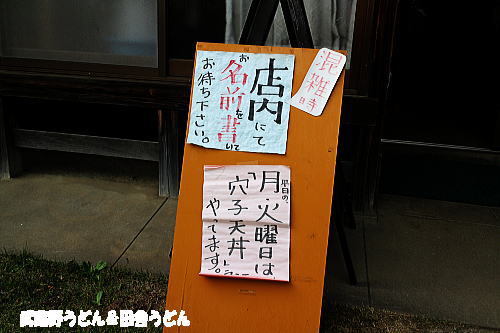 混雑時
店内にて
お名前を書いて
お待ち下さい。
平日の、
月・火曜日は
「穴子天丼」
やってます。
武蔵野うどん&田舎うどん